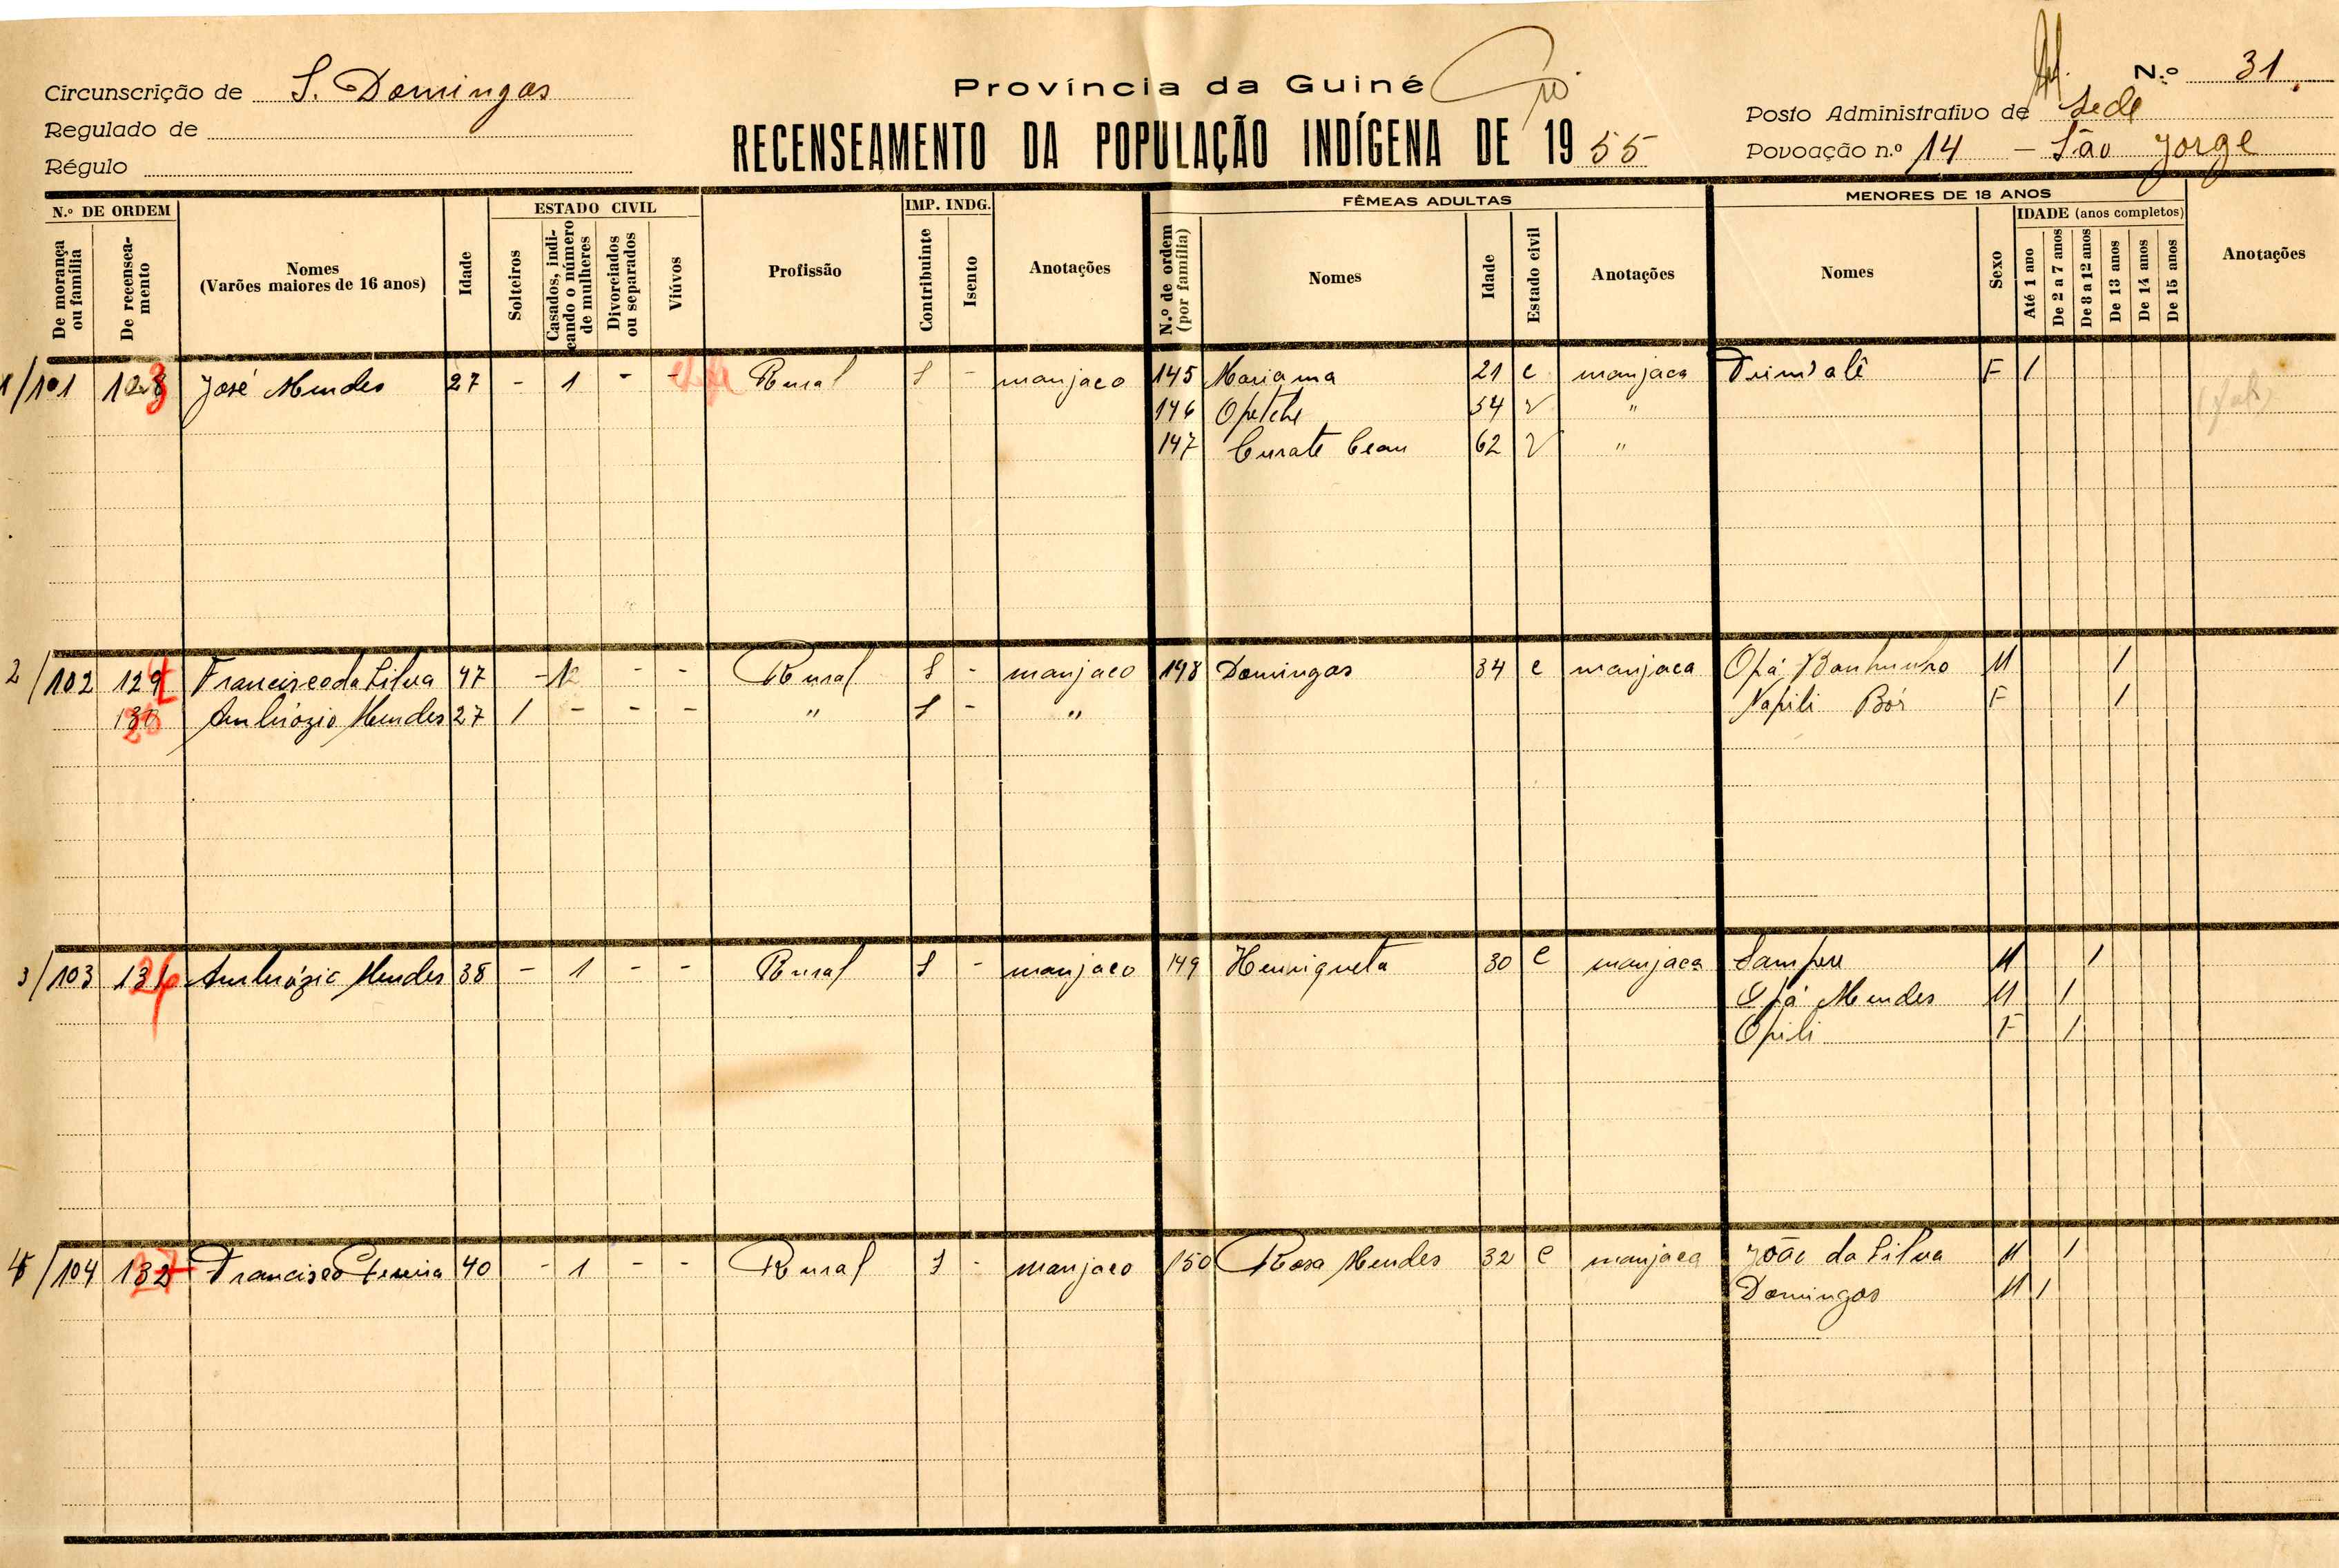 Circunscrição de S. Domingos
Regulado de
Régulo
Província da Guiné
RECENSEAMENTO DA POPULAÇÃO INDÍGENA DE 1955
N.º 31
Posto Administrativo de Sede
Povoação n.º 14 - São Jorge
N.º DE ORDEM
De morança ou família
De recenseamento
Nomes
(Varões maiores de 16 anos)
Idade
ESTADO CIVIL
Solteiros
Casados, indicando o número de mulheres
Divorciados ou separados
Viúvos
Profissão
IMP. INDG.
Contribuinte
Isento
Anotações
FÊMEAS ADULTAS
N.º de ordem (por família)
Nomes
Idade
Estado civil
Anotações
MENORES DE 18 ANOS
Nomes
Sexo
IDADE (anos completos)
Até 1 ano
De 2 a 7 anos
De 8 a 12 anos
De 13 anos
De 14 anos
De 15 anos
Anotações
1/101 José Mendes 27 - 1 - - Rural S - manjaco 145 Mariama 21 c manjaca F 1
146 Opetche 54 V "
147 62 V "
2/102 129 Francisco da Silva 47 - - - Rural S - manjaco 148 Domingas 34 c manjaca Opá Banhunho M 1
130 Ambrózio Mendes 27 1 - - - " S - " Napili Bór F 1
3/103 131 Ambrózio Mendes 38 - 1 - - Rural S - manjaco 149 Henriqueta 30 c manjaca M 1
Opá Mendes M 1
Opili F 1
4/104 132 Francisco Pereira 40 - 1 - - Rural S - manjaco 150 Rosa Mendes 32 c manjaca João da Silva M 1
Domingos M 1